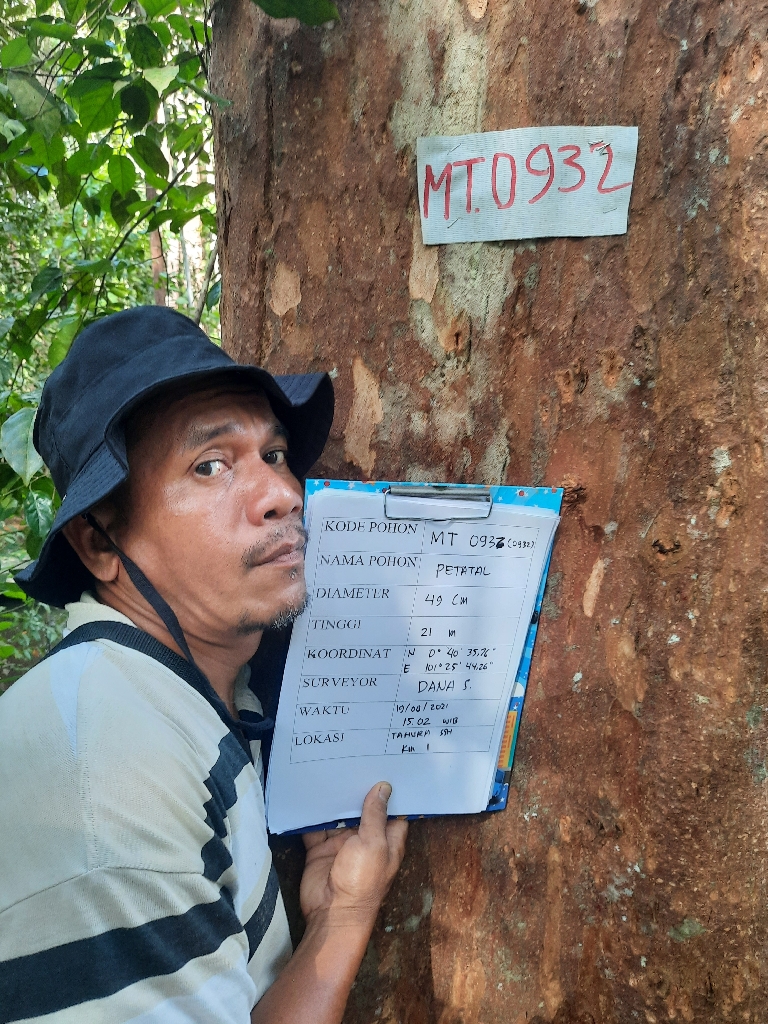 MT.0932
KODE POHON MT 0932 (0932)
NAMA POHON PETATAL
DIAMETER 49 CM
TINGGI 21 m
KOORDINAT N 0° 40' 35,76"
E 101° 25' 44,26"
SURVEYOR DANA S.
WAKTU 19/08/2021
15.02 WIB
LOKASI TAHURA SSH
KM 1